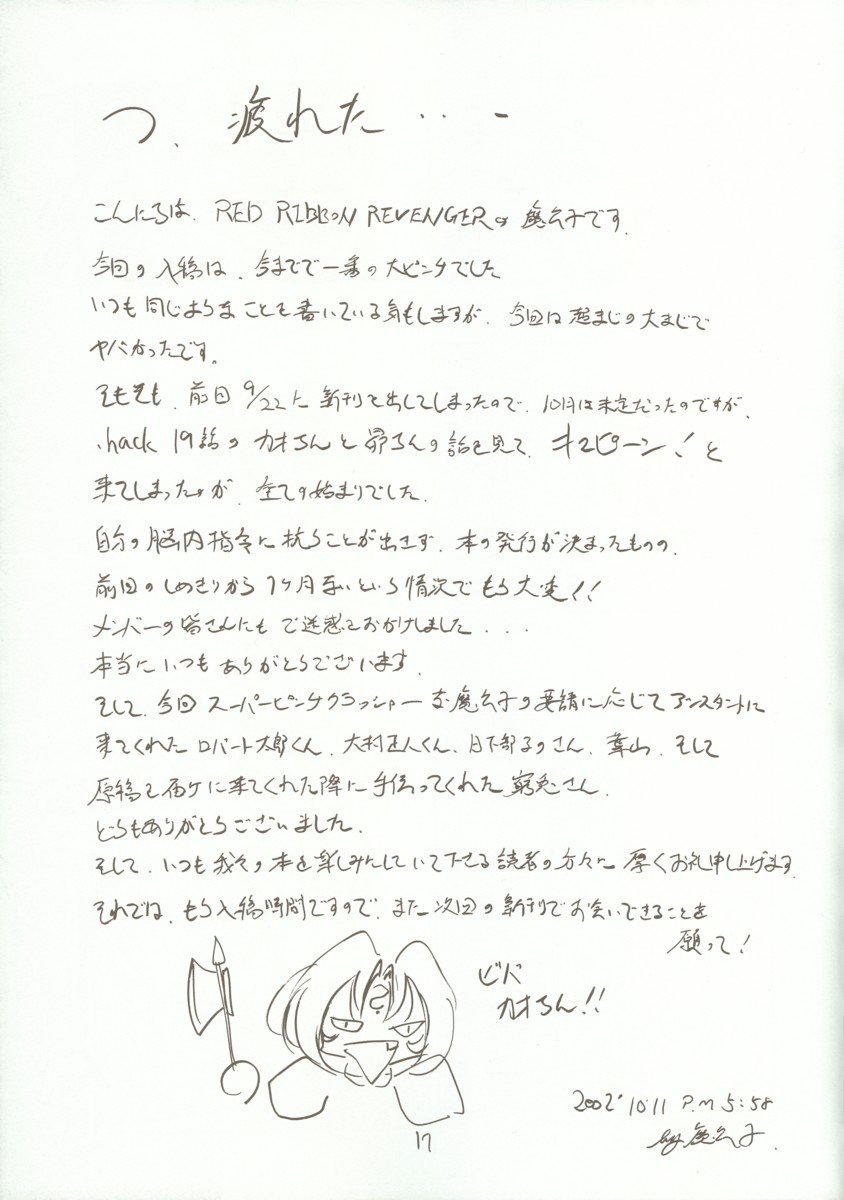 つ、疲れた・・ー
こんにちは、RED RIBBON REVENGERの魔公子です。
今回の入稿は、今までで一番の大ピンチでした
いつも同じようなことを書いている気もしますが、今回は超まじの大まじで
ヤバかったです。
そもそも、前回9/22に新刊を出してしまったので、10月は未定だったのですが、
.hack 19話のカオちんと昴ちんの話を見て、キュピーン!と
来てしまったのが、全ての始まりでした。
自分の脳内指令に抗うことが出きず、本の発行が決まったものの、
前回のしめきりから1ヶ月無いという情況でもう大変!!
メンバーの皆さんにもご迷惑をおかけしました...
本当にいつもありがとうございます。
そして、今回スーパーピンチクラッシャーな魔公子の要請に応じてアシスタントに
来てくれたロバート太郎くん、大村正人くん、日下部さん、葉山、そして
原稿を届けに来てくれた際に手伝ってくれた窮兎さん、
どうもありがとうございました。
そして、いつも我々の本を楽しみにしていて下さる読者の方々に厚くお礼申し上げます。
それでは、もう入稿時間ですので、また次回の新刊でお会いできることを
願って!
ビバ
カオちん!!
2002' 10.11 P.M 5:58
by 魔公子.
17